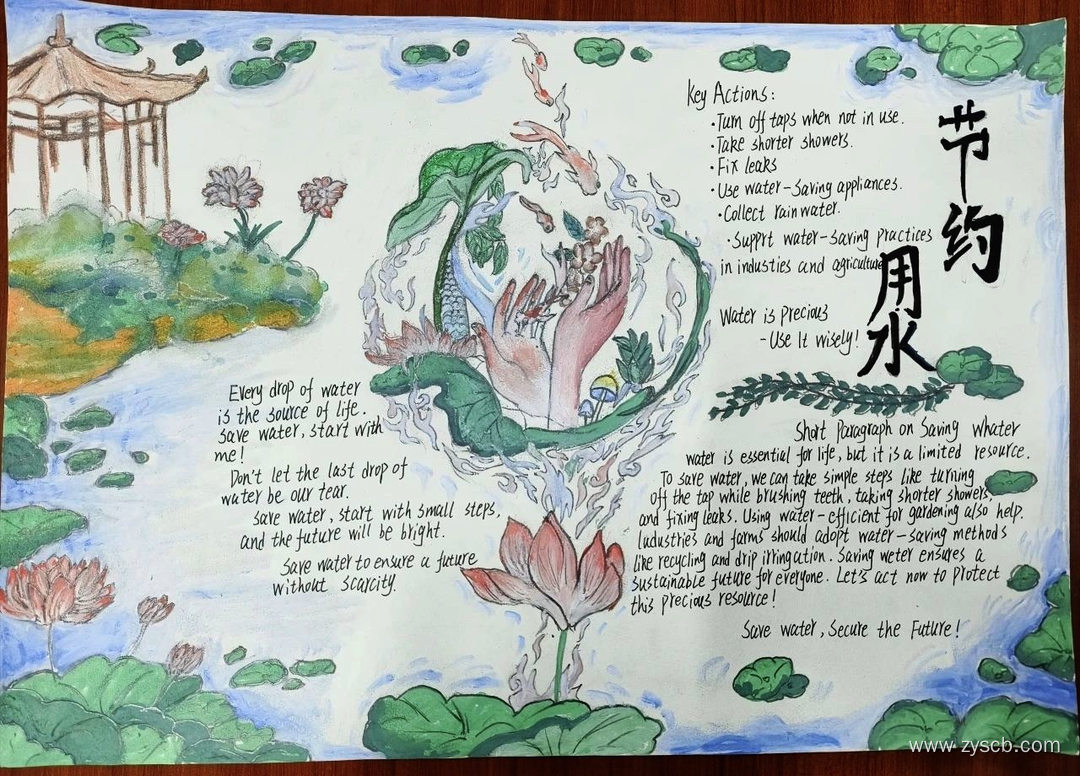 Key Actions:
·Turn off taps when not in use.
·Take shorter showers.
·Fix leaks
·Use water-saving appliances.
·Collect rainwater.
·Supprt water-saving practices
in industies and agriculture
Water is Precious
-Use It wisely!
节约
用水
Every drop of water
is the source of life.
Save water, start with
me!
Don't let the last drop of
water be our tear.
Save water, start with small steps,
and the future will be bright.
Save water to ensure a future
without scarcity.
Short Paragraph on Saving whater
water is essential for life, but it is a limited resource.
To save water, we can take simple steps like turning
off the tap while brushing teeth, taking shorter showers,
and fixing leaks. Using water-efficient for gardening also help.
Ludustries and farms should adopt water-saving methods
like recycling and drip irringation. Saving weter ensures a
sustainable future for everyone. Let's act now to protect
this precious resource!
Save water, Secure the Future!
www.zyscb.com